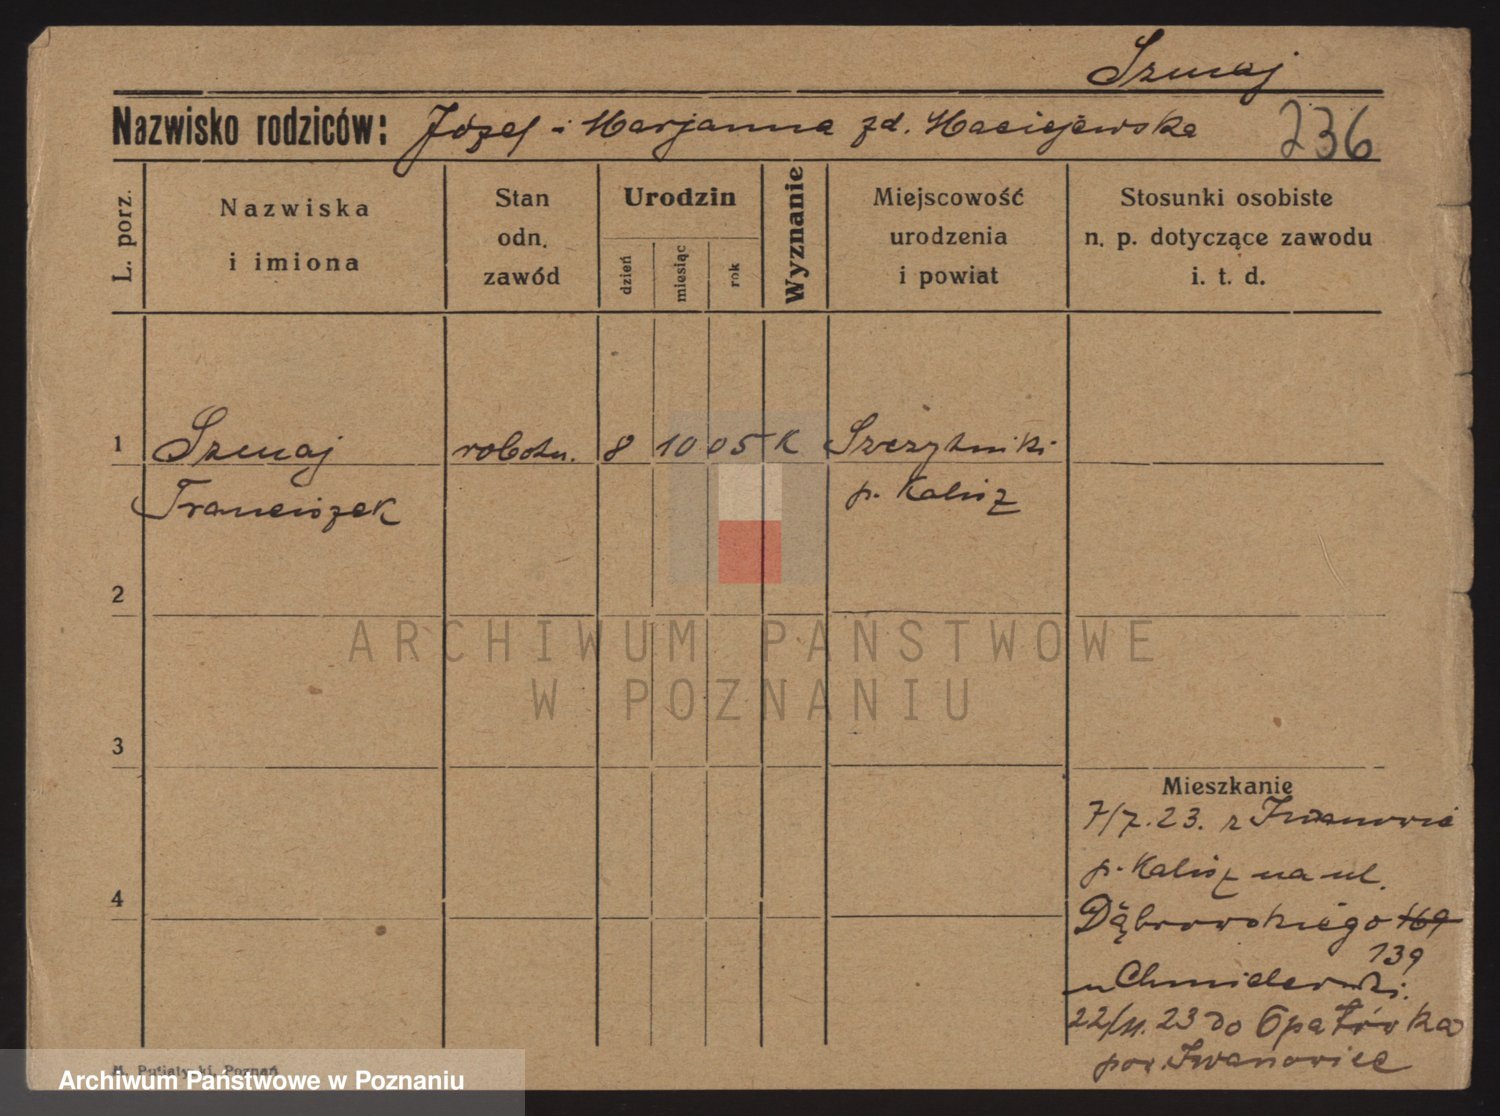 Szmaj
Nazwisko rodziców: Józef i Marjanna zd. Maciejewska 236
L. porz.
Nazwiska
i imiona
Stan
odn.
zawód
Urodzin
dzień
miesiąc
rok
Wyznanie
Miejscowość
urodzenia
i powiat
Stosunki osobiste
n. p. dotyczące zawodu
i. t. d.
1 Szmaj robotn. 8 10 05 K Szczytniki
Franciszek p. Kalisz
2
3
4
Mieszkanie
7/7.23. z Iwanowic
p. Kalisz na ul.
Dąbrowskiego 169
139
u Chmielewski.
22/11.23 do Opatówka
pow. Iwanowice
Poznań
ARCHIWUM PAŃSTWOWE
W POZNANIU
Archiwum Państwowe w Poznaniu